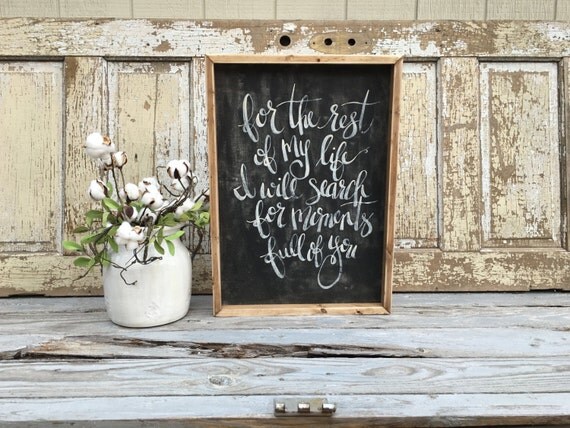 for the rest
of my life
I will search
for moments
full of you